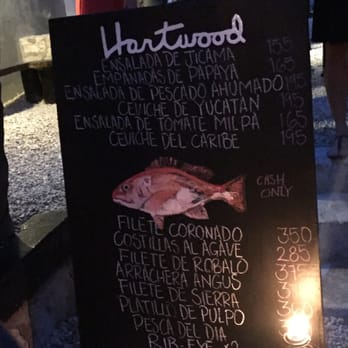 Hartwood
ENSALADA DE JICAMA 155
EMPANADAS DE PAPAYA 165
ENSALADA DE PESCADO AHUMADO 195
CEVICHE DE YUCATAN 195
ENSALADA DE TOMATE MILPA 165
CEVICHE DEL CARIBE 195
CASH
ONLY
FILETE CORONADO 350
COSTILLAS AL AGAVE 285
FILETE DE ROBALO 375
ARRACHERA ANGUS
FILETE DE SIERRA
PLATILLO DE PULPO
PESCA DEL DIA
RIB-EYE